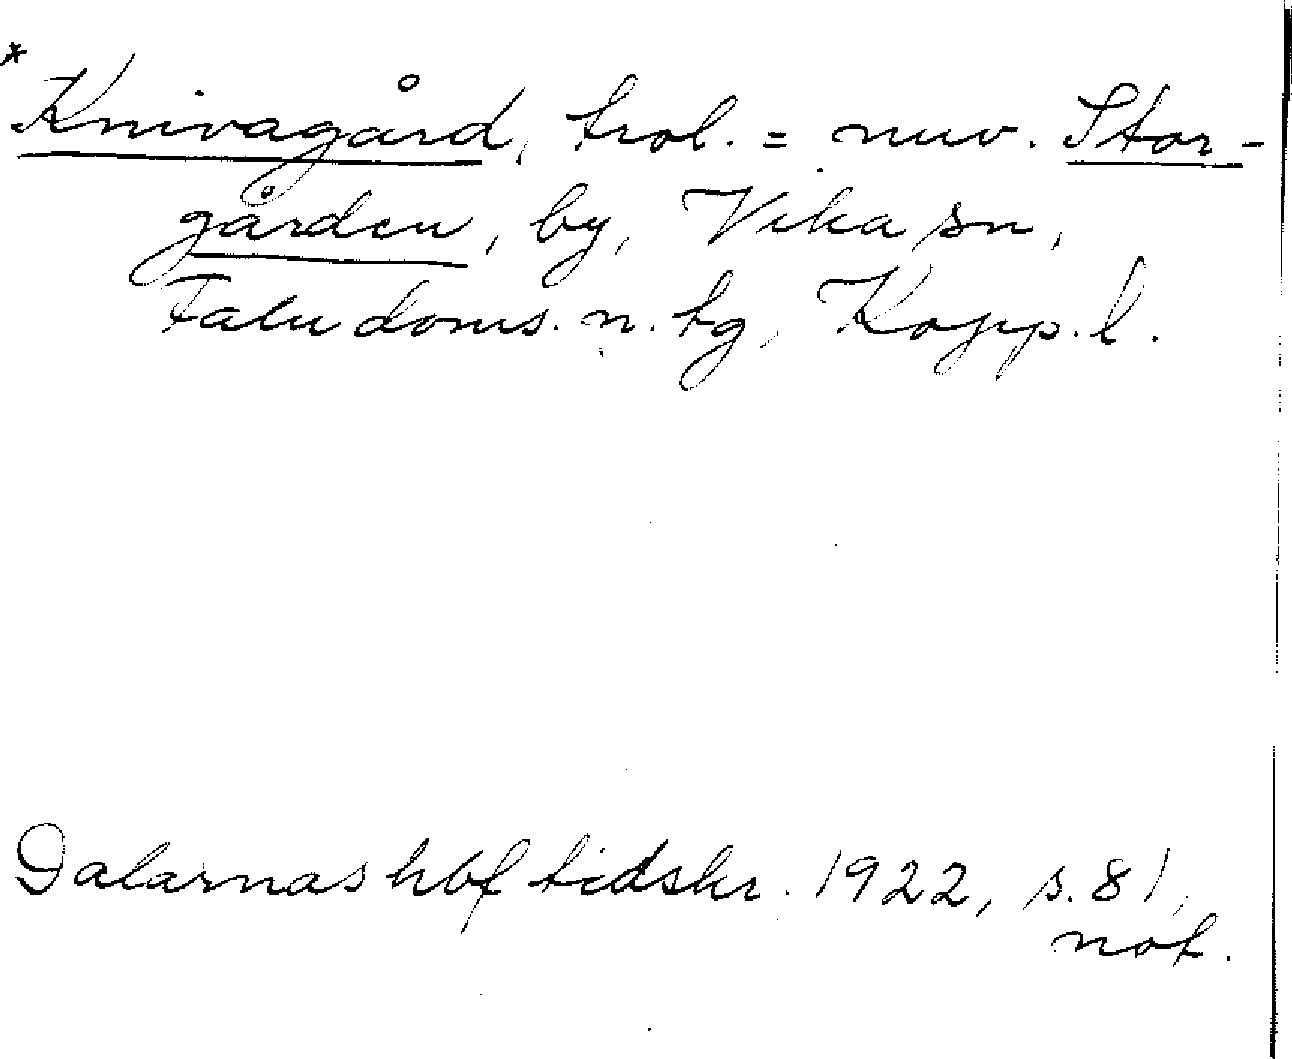 *Knivagård, trol. = nuv. Stor-
gården, by, Vika sn,
Falu doms. n. tg, Kopp. l.
Dalarnas hbf tidskr. 1922, s. 81,
not.